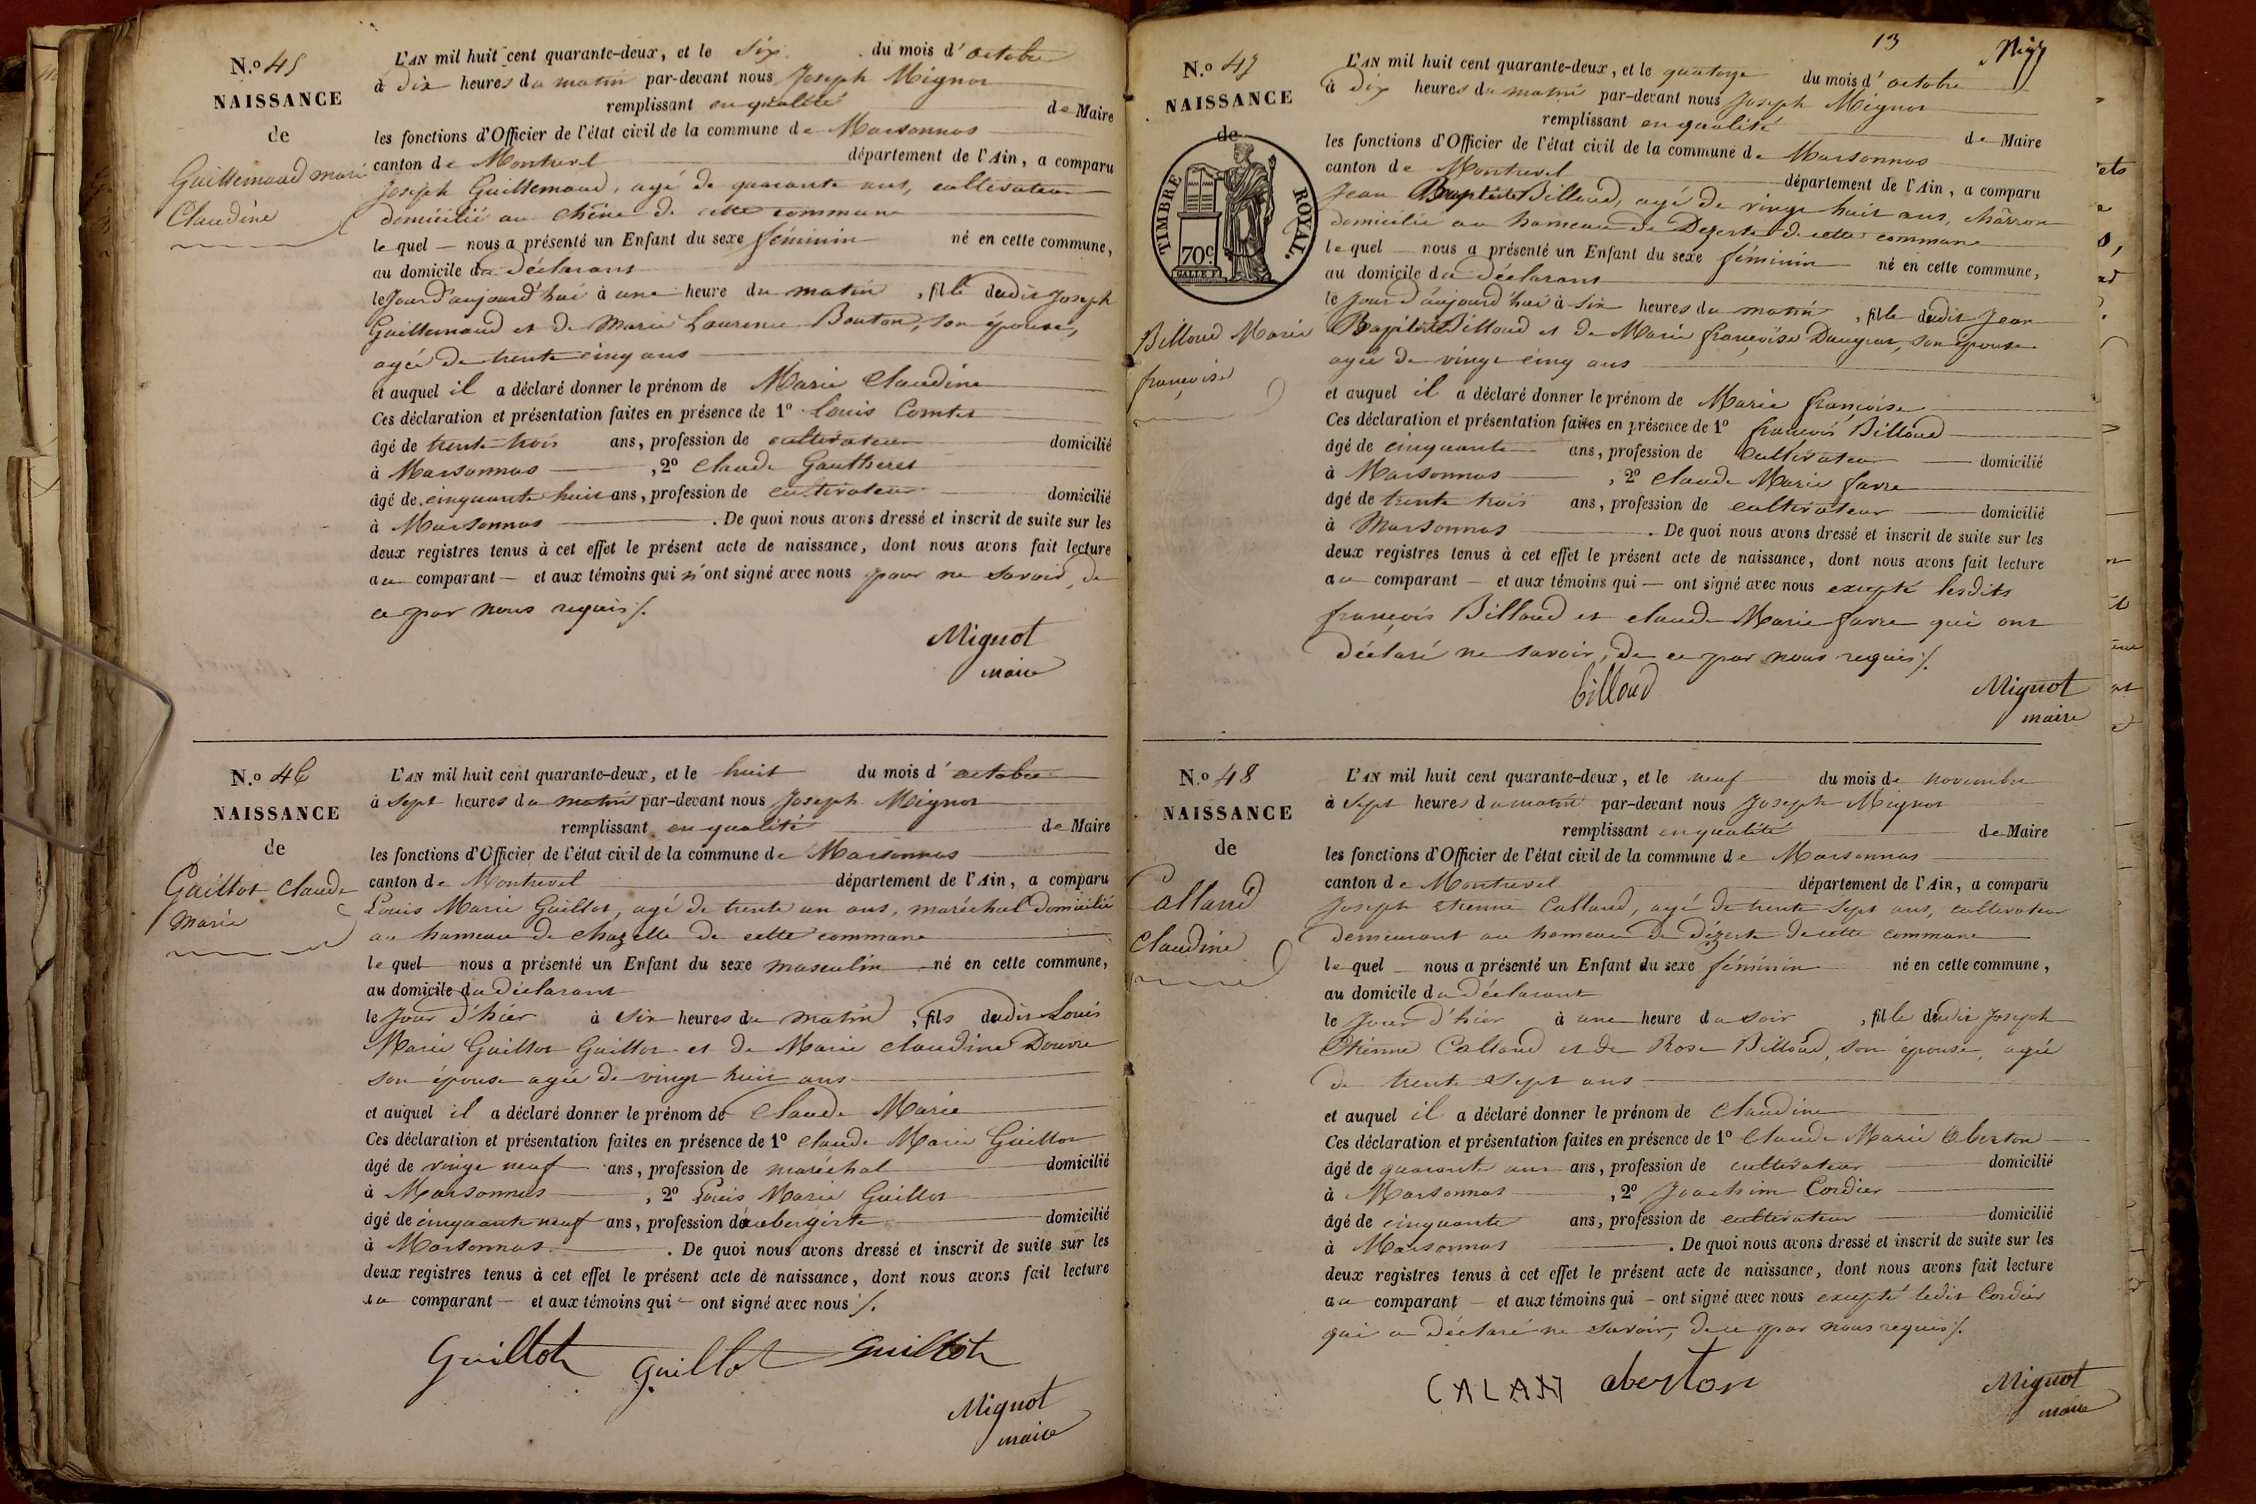 N.º 45
NAISSANCE
de
Guillemaud marie
Claudine
L'AN mil huit cent quarante-deux, et le six du mois d'octobre
à dix heures du matin par-devant nous Joseph Mignot
remplissant en qualité de Maire
les fonctions d'Officier de l'état civil de la commune de Marsonnas
canton de Montrevel département de l'Ain, a comparu
Joseph Guillemaud, agé de quarante ans, cultivateur
domicilié au chêne de cette commune
lequel — nous a présenté un Enfant du sexe féminin né en cette commune,
au domicile du déclarant
le Jour d'aujourd'hui à une heure du matin, fille dudit Joseph
Guillemaud et de Marie Laurence Bouton, son épouse,
agée de trente cinq ans
et auquel il a déclaré donner le prénom de Marie Claudine
Ces déclaration et présentation faites en présence de 1º Louis Comtet
âgé de trente trois ans, profession de cultivateur domicilié
à Marsonnas, 2º Claude Gautheret
âgé de cinquante huit ans, profession de cultivateur domicilié
à Marsonnas. De quoi nous avons dressé et inscrit de suite sur les
deux registres tenus à cet effet le présent acte de naissance, dont nous avons fait lecture
au comparant — et aux témoins qui n'ont signé avec nous pour ne savoir, de
ce par nous requis/.
Mignot
maire
N.º 46
NAISSANCE
de
Guillot Claude
Marie
L'AN mil huit cent quarante-deux, et le huit du mois d'octobre
à sept heures du matin par-devant nous Joseph Mignot
remplissant en qualité de Maire
les fonctions d'Officier de l'état civil de la commune de Marsonnas
canton de Montrevel département de l'Ain, a comparu
Louis Marie Guillot, agé de trente un ans, maréchal domicilié
au hameau de chazelle de cette commune
lequel nous a présenté un Enfant du sexe masculin né en cette commune,
au domicile du déclarant
le Jour d'hier à six heures du matin, fils dudit Louis
Marie Guillot Guillot et de Marie claudine Douvre
son épouse agée de vingt huit ans
et auquel il a déclaré donner le prénom de Claude Marie
Ces déclaration et présentation faites en présence de 1º Claude Marie Guillot
âgé de vingt neuf ans, profession de maréchal domicilié
à Marsonnas, 2º Louis Marie Guillot
âgé de cinquante neuf ans, profession d'aubergiste domicilié
à Marsonnas. De quoi nous avons dressé et inscrit de suite sur les
deux registres tenus à cet effet le présent acte de naissance, dont nous avons fait lecture
au comparant — et aux témoins qui — ont signé avec nous /.
Guillot guillot Guillot
Mignot
maire
13
N.º 47
NAISSANCE
de
TIMBRE ROYAL.
70c
Billoud Marie
françoise
L'AN mil huit cent quarante-deux, et le quatorze du mois d'octobre
à dix heures du matin par-devant nous Joseph Mignot
remplissant en qualité de Maire
les fonctions d'Officier de l'état civil de la commune de Marsonnas
canton de Montrevel département de l'Ain, a comparu
Jean Baptiste Billoud, agé de vingt huit ans, chârron
domicilié au hameau de Dezerte de cette commune
lequel nous a présenté un Enfant du sexe féminin né en cette commune,
au domicile du déclarant
le Jour d'aujourd'hui à six heures du matin, fille dudit Jean
Baptiste Billoud et de Marie françoise Daugras, son épouse
agée de vingt cinq ans
et auquel il a déclaré donner le prénom de Marie françoise
Ces déclaration et présentation faites en présence de 1º françois Billoud
âgé de cinquante ans, profession de cultivateur domicilié
à Marsonnas, 2º claude Marie favre
âgé de trente trois ans, profession de cultivateur domicilié
à Marsonnas. De quoi nous avons dressé et inscrit de suite sur les
deux registres tenus à cet effet le présent acte de naissance, dont nous avons fait lecture
au comparant — et aux témoins qui — ont signé avec nous excepté lesdits
françois Billoud et claude Marie favre qui ont
déclaré ne savoir, de ce par nous requis/.
billoud
Mignot
maire
N.º 48
NAISSANCE
de
Calland
Claudine
L'AN mil huit cent quarante-deux, et le neuf du mois de novembre
à sept heures du matin par-devant nous Joseph Mignot
remplissant en qualité de Maire
les fonctions d'Officier de l'état civil de la commune de Marsonnas
canton de Montrevel département de l'Ain, a comparu
Joseph etienne Calland, agé de trente sept ans, cultivateur
demeurant au hameau de Dézerte de cette commune
lequel — nous a présenté un Enfant du sexe féminin né en cette commune,
au domicile du déclarant
le Jour d'hier à une heure du soir, fille dudit Joseph
Etienne Calland et de Rose Billoud, son épouse, agée
de trente sept ans
et auquel il a déclaré donner le prénom de Claudine
Ces déclaration et présentation faites en présence de 1º Claude Marie Oberton
âgé de quarante ans, profession de cultivateur domicilié
à Marsonnas, 2º Joachim Cordier
âgé de cinquante ans, profession de cultivateur domicilié
à Marsonnas. De quoi nous avons dressé et inscrit de suite sur les
deux registres tenus à cet effet le présent acte de naissance, dont nous avons fait lecture
au comparant — et aux témoins qui — ont signé avec nous excepté ledit Cordier
qui a déclaré ne savoir, de ce par nous requis/.
CALAN oberton
Mignot
maire